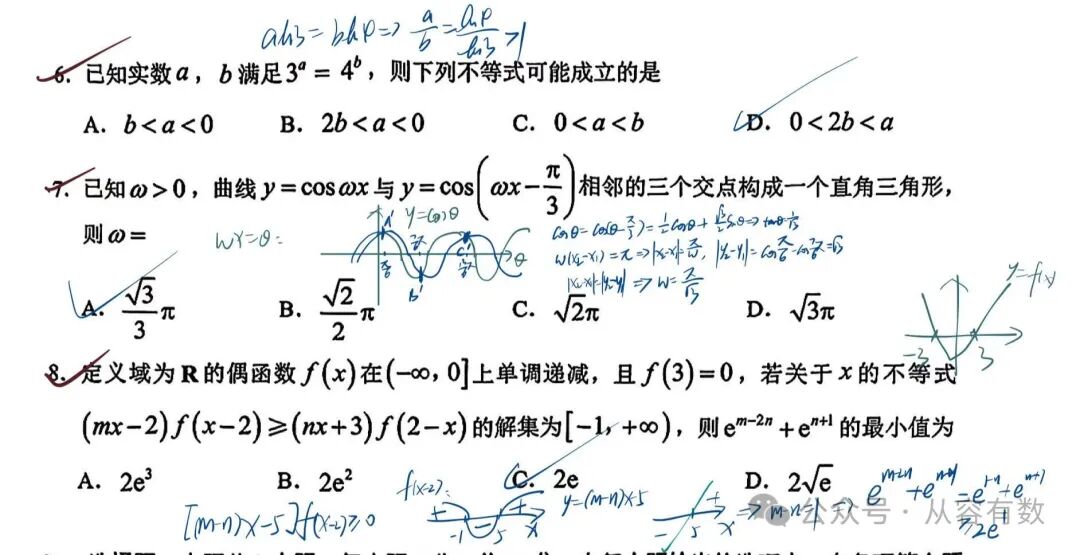 aln3 = bln4 ⇒ a/b = ln4/ln3 > 1
6. 已知实数a，b满足3^a = 4^b，则下列不等式可能成立的是
A. b<a<0 B. 2b<a<0 C. 0<a<b D. 0<2b<a
7. 已知ω>0，曲线y=cosωx与y=cos(ωx-π/3)相邻的三个交点构成一个直角三角形，
则ω=
ωx=θ:
y=cosθ
cosθ=cos(θ-π/3)=1/2cosθ+√3/2sinθ⇒tanθ=1/√3
ω(x₂-x₁)=π⇒|x₂-x₁|=π/ω,
⇒ω=π/√3
A. √3/3 π B. √2/2 π C. √2π D. √3π
y=f(x)
-3 3
8. 定义域为R的偶函数f(x)在(-∞, 0]上单调递减，且f(3)=0，若关于x的不等式
(mx-2)f(x-2)≥(nx+3)f(2-x)的解集为[-1, +∞)，则e^{m-2n}+e^{n+1}的最小值为
A. 2e³ B. 2e² C. 2e D. 2√e
[(m-n)x-5]f(x-2)≥0
f(x-2):
+ - + -1 5 x
y=(m-n)x-5
- + 5 x
公众号 · 从容有数